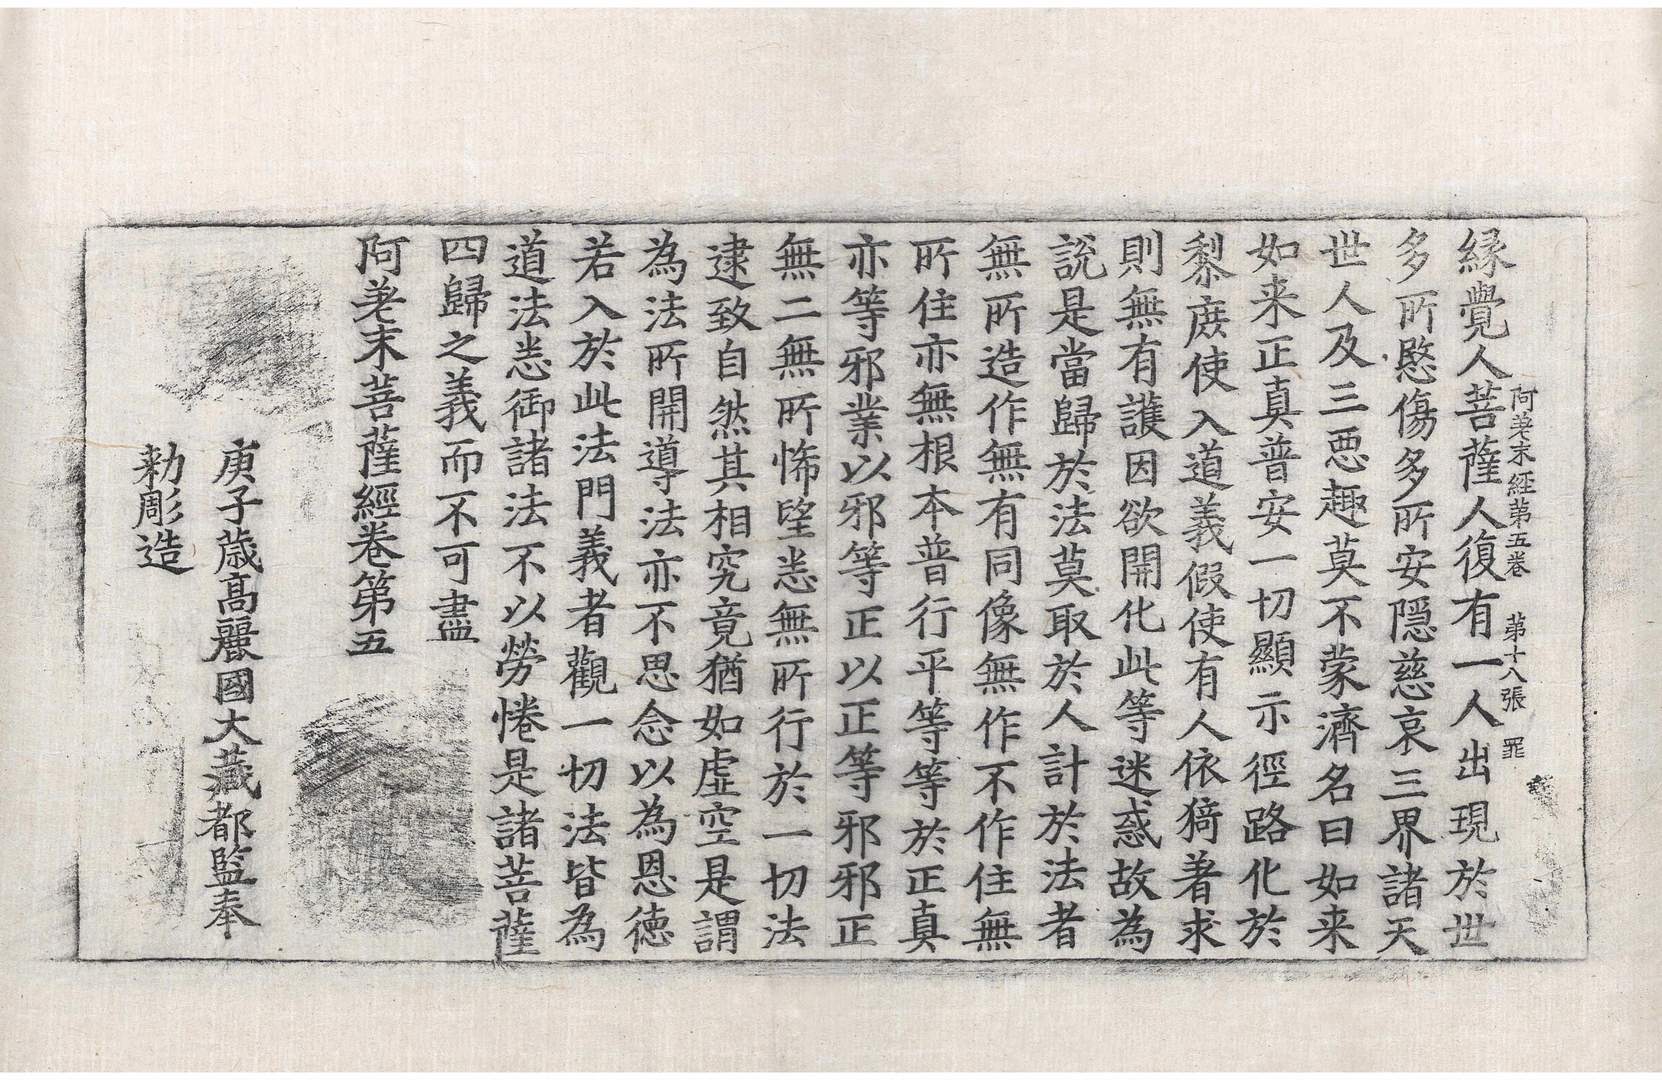 緣覺人菩薩人復有一人出現於世
阿差末經第五卷　第十八張　罪
多所愍傷多所安隱慈哀三界諸天
世人及三惡趣莫不蒙濟名曰如来
如来正真普安一切顯示徑路化於
黎庶使入道義假使有人依猗著求
則無有護因欲開化此等迷惑故為
說是當歸於法莫取於人計於法者
無所造作無有同像無作不作住無
所住亦無根本普行平等等於正真
亦等邪業以邪等正以正等邪邪正
無二無所悕望悉無所行於一切法
逮致自然其相究竟猶如虛空是謂
為法所開導法亦不思念以為恩德
若入於此法門義者觀一切法皆為
道法悉御諸法不以勞惓是諸菩薩
四歸之義而不可盡
阿差末菩薩經卷第五
庚子歲高麗國大藏都監奉
勑彫造